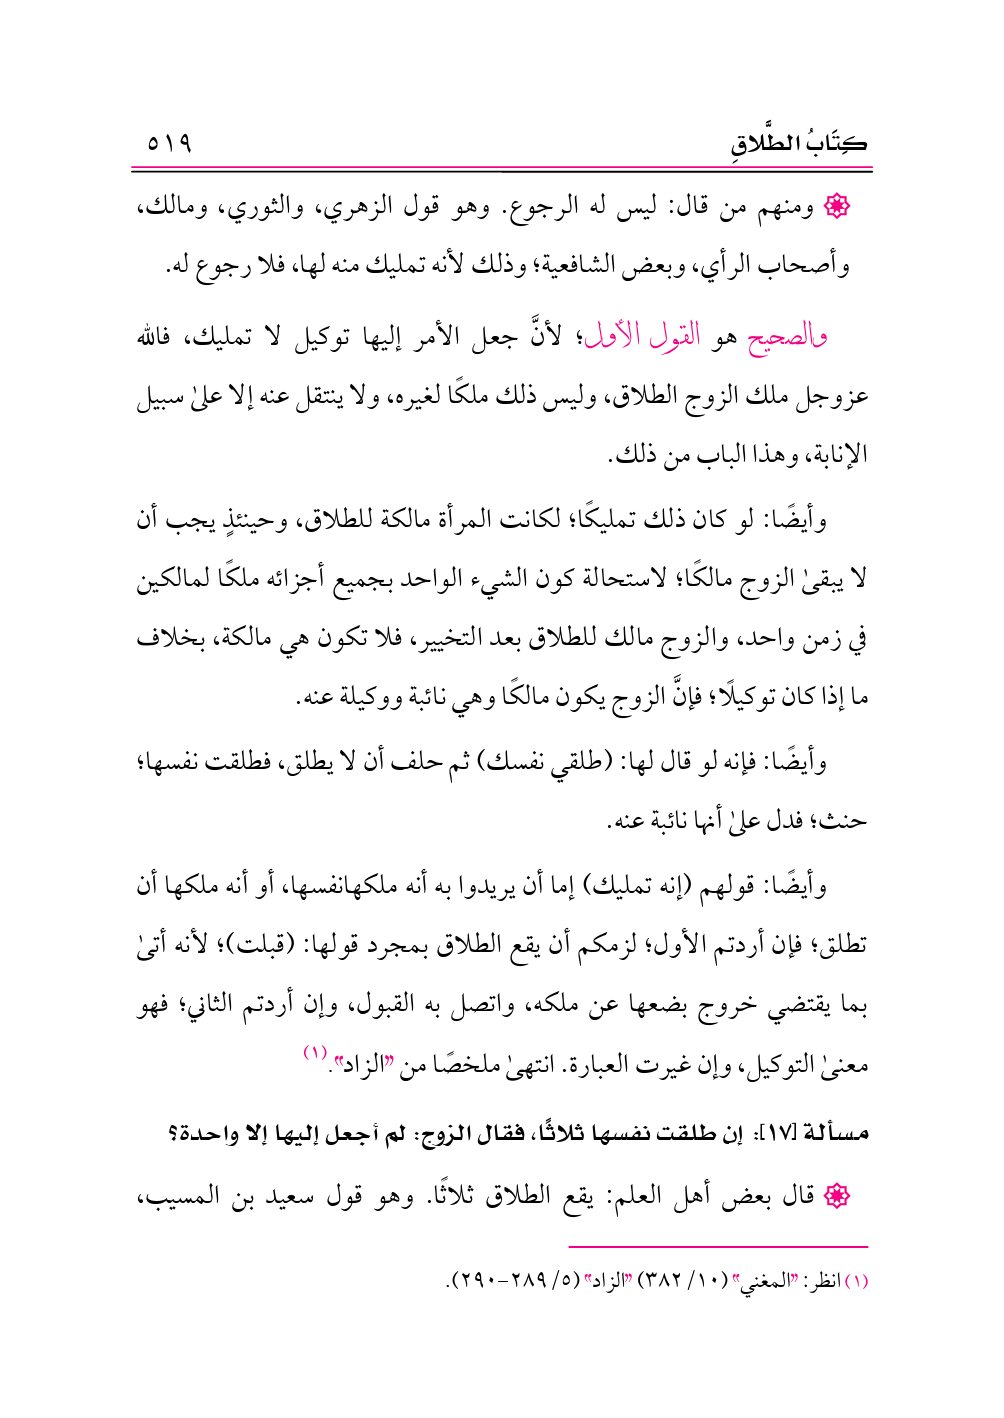 كِتَابُ الطَّلاقِ ٥١٩
ومنهم من قال: ليس له الرجوع. وهو قول الزهري، والثوري، ومالك،
وأصحاب الرأي، وبعض الشافعية؛ وذلك لأنه تمليك منه لها، فلا رجوع له.
والصحيح هو القول الأول؛ لأنَّ جعل الأمر إليها توكيل لا تمليك، فالله
عزوجل ملك الزوج الطلاق، وليس ذلك ملكًا لغيره، ولا ينتقل عنه إلا علىٰ سبيل
الإنابة، وهذا الباب من ذلك.
وأيضًا: لو كان ذلك تمليكًا؛ لكانت المرأة مالكة للطلاق، وحينئذٍ يجب أن
لا يبقىٰ الزوج مالكًا؛ لاستحالة كون الشيء الواحد بجميع أجزائه ملكًا لمالكين
في زمن واحد، والزوج مالك للطلاق بعد التخيير، فلا تكون هي مالكة، بخلاف
ما إذا كان توكيلًا؛ فإنَّ الزوج يكون مالكًا وهي نائبة ووكيلة عنه.
وأيضًا: فإنه لو قال لها: (طلقي نفسك) ثم حلف أن لا يطلق، فطلقت نفسها؛
حنث؛ فدل علىٰ أنها نائبة عنه.
وأيضًا: قولهم (إنه تمليك) إما أن يريدوا به أنه ملكهانفسها، أو أنه ملكها أن
تطلق؛ فإن أردتم الأول؛ لزمكم أن يقع الطلاق بمجرد قولها: (قبلت)؛ لأنه أتىٰ
بما يقتضي خروج بضعها عن ملكه، واتصل به القبول، وإن أردتم الثاني؛ فهو
معنىٰ التوكيل، وإن غيرت العبارة. انتهىٰ ملخصًا من "الزاد".(١)
مسألة [١٧]: إن طلقت نفسها ثلاثًا، فقال الزوج: لم أجعل إليها إلا واحدة؟
قال بعض أهل العلم: يقع الطلاق ثلاثًا. وهو قول سعيد بن المسيب،
(١) انظر: "المغني" (١٠/ ٣٨٢) "الزاد" (٥/ ٢٨٩-٢٩٠).